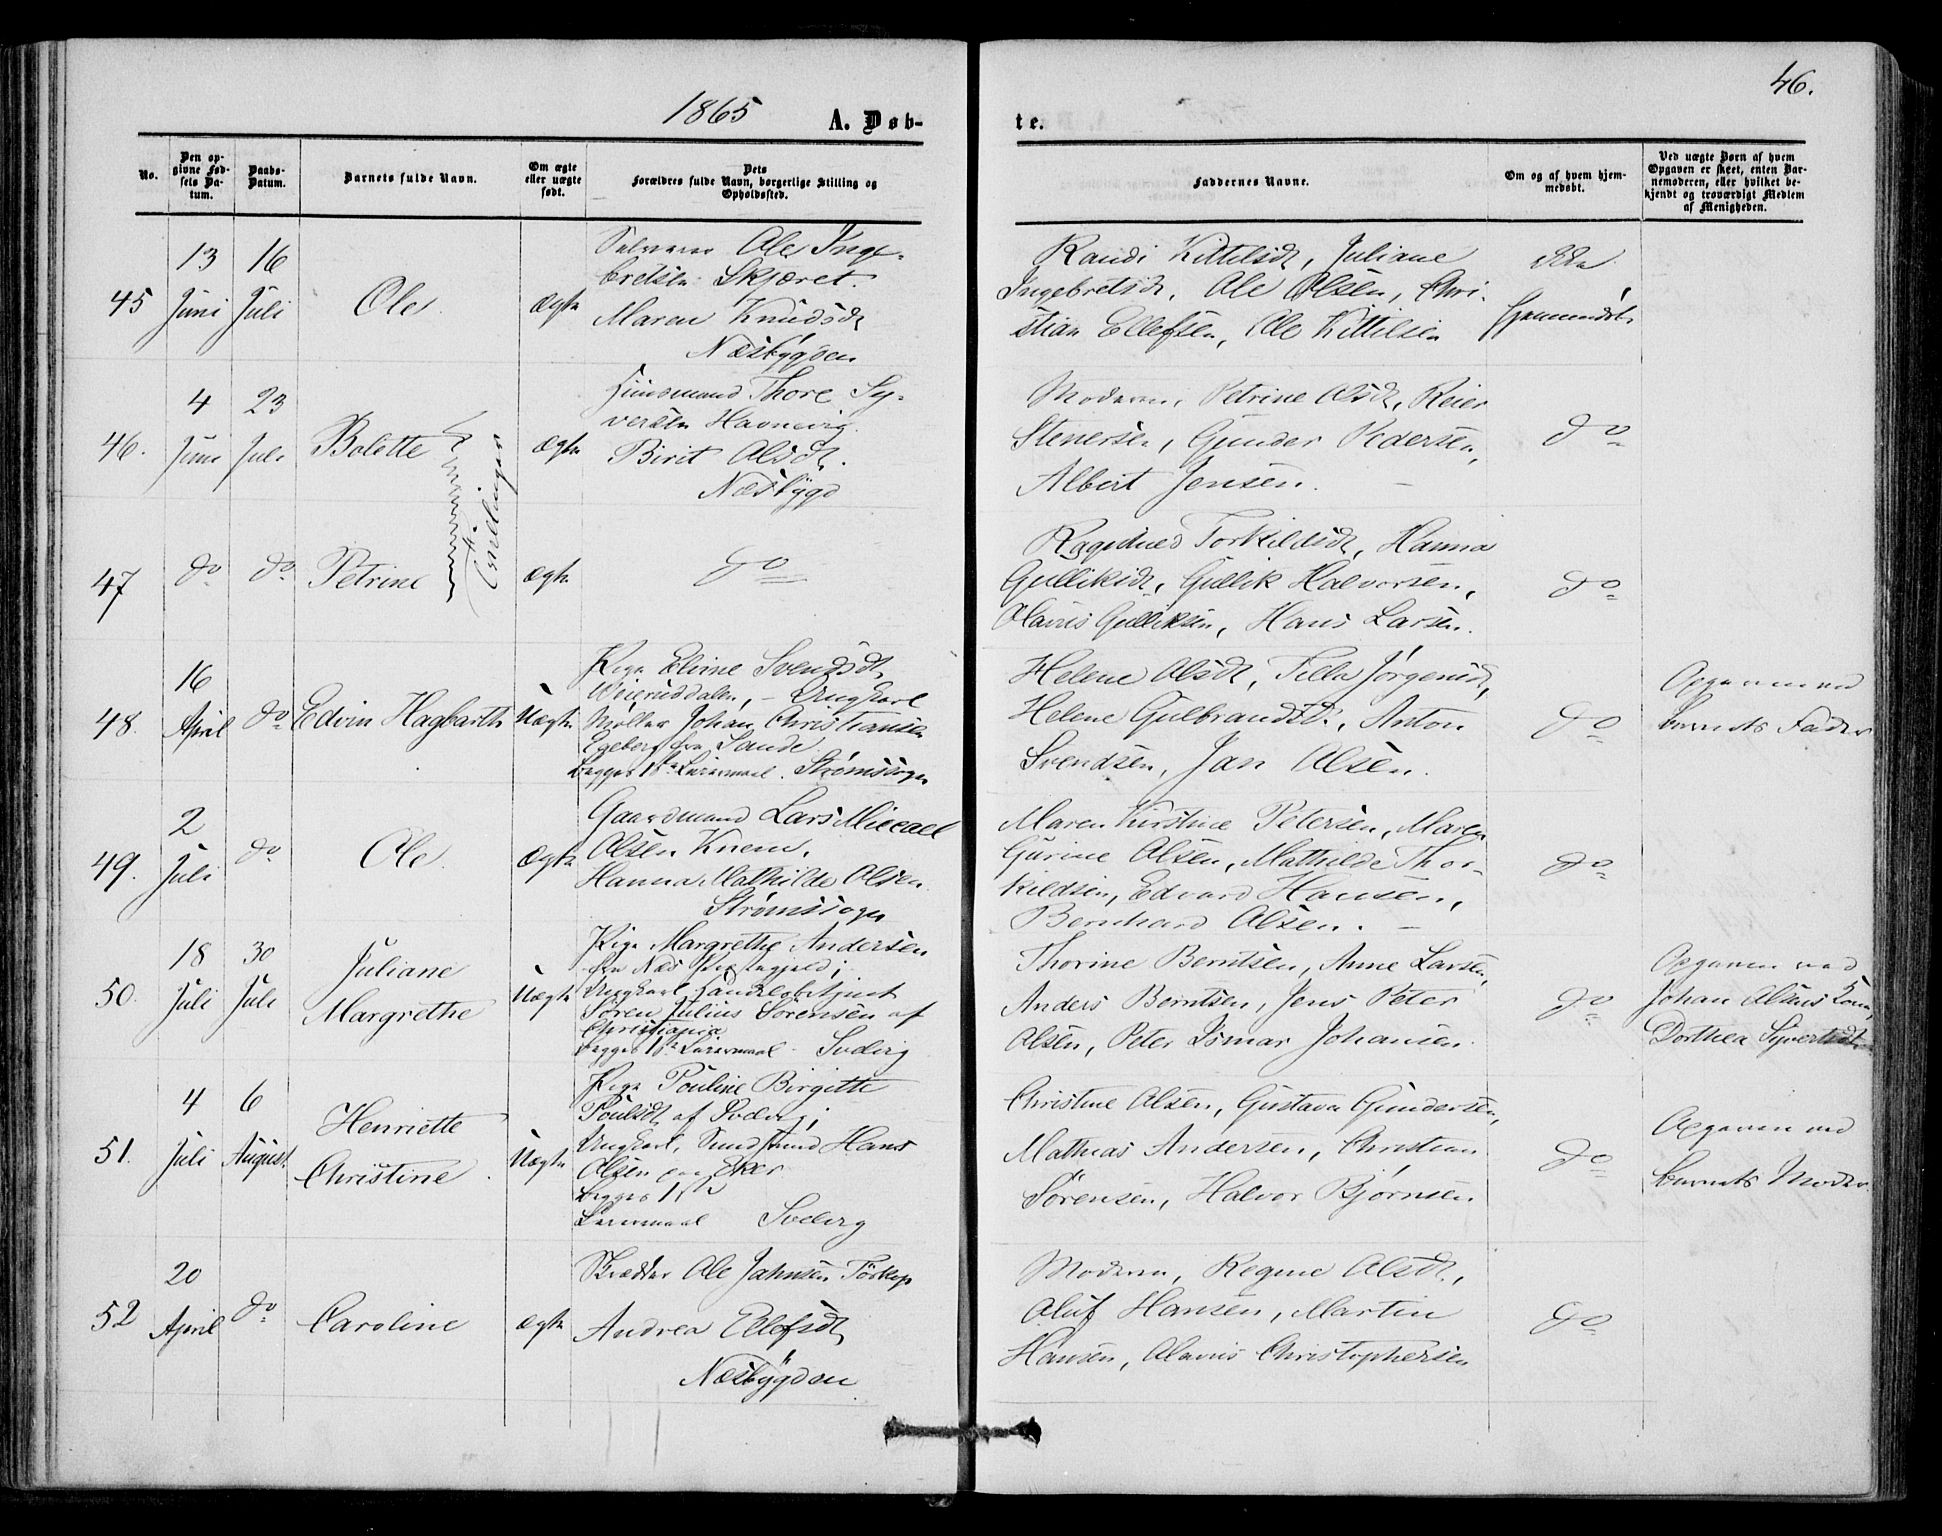 1865
A. Døb-
te.
46.
No.
Den op-
givne Fød-
sels Da-
tum.
Daabs-
Datum.
Barnets fulde Navn.
Om ægte
eller uægte
født.
Dets
Forældres fulde Navn, borgerlige Stilling og
Opholdssted.
Faddernes Navne.
Om og af hvem hjem-
medøbt.
Ved uægte Børn af hvem
Opgaven er skeet, enten Bar-
nemoderen, eller hvilket be-
kjendt og troværdigt Medlem
af Menigheden.
45
13
Juni
16
Juli
Ole
Ægte
Ole Inge-
bretsen Skjæret.
Maren Knudsdt
Næsbygden
Randi Kittilsdt, Juliane
Ingebretsdt, Ole Olsen, Chri-
stian Ellefsen, Ole Kittilsen
Ikke
hjemmedøbt
46.
4
Juni
23
Juli
Bolette
Tvillinger
Ægte
Huusmand Thore Sy-
versen Havnevig.
Birit Olsdt.
Næsbygd
Moderen, Petrine Olsdt, Reier
Stenersen, Gunder Pedersen,
Albert Jensen.
do
47
do
do
Petrine
Ægte
do
Torkildsdt, Hanna
Gulliksdt, Gullik Halvorsen,
Olavus Gulliksen, Hans Larsen.
do
48.
16
April
do
Edvin Hagbarth
Uægte
Pige Eline Svendsdt
Weierud̈dalen, - Ungkarl
Møller Johan Christiansen
Egeberg fra Sande.
begges 1ste Leiermaal. Strømssogn
Helene Olsdt, Tilla Jørgensdt,
Helene Gulbrandsdt., Anton
Svendsen, Jan Olsen.
do
Opgaven ved
barnets Fader
49.
2
Juli
do
Ole
Ægte
Gaardmand Lars Micael
Olsen Knem.
Hanna Mathilde Olsen
Strømssogn
Maren Kirstine Petersen, Maren
Gurine Olsen, Mathilde Thor-
kildsen, Edvard Hansen,
Bernhard Olsen.
do
50.
18
Juli
30
Juli
Juliane
Margrethe
Uægte
Pige Margrethe Andersen
fra Næs Præstegjeld;
Ungkarl Handelsbetjent
Søren Julius Sørensen af
Christiania
begges 1ste Leiermaal. Svelvig
Thorine Berntsen, Anne Larsen,
Anders Berntsen, Jens Peter
Olsen, Peter Ismar Johansen.
do
Opgaven ved
Johan Olsens Kone,
Dorthea Syvertsdt.
51.
4
Juli
6
August.
Henriette
Christine
Uægte
Pige Pouline Birgitte
Poulsdt af Svelvig;
Ungkarl, Hans
Olsen paa Eker
begges 1ste
Leiermaal Svelvig
Christine Olsen, Gustava Gundersen,
Mathias Andersen, Christian
Sørensen, Halvor Bjørnsen
do
Opgaven ved
barnets Moder.
52
20
April
do
Caroline
Ægte
Skrædder Ole Johnsen Torkop
Andrea Ellefsdt
Næsbygden
Moderen, Regine Olsdt,
Oluf Hansen, Martin
Hansen, Olavus Christophersen
do